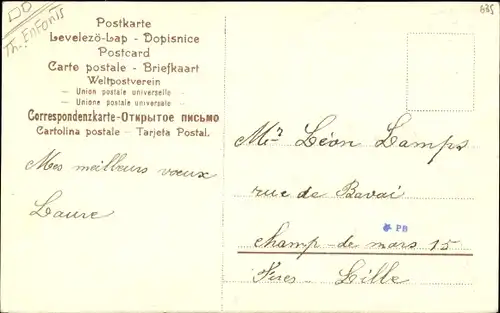 Th. Enfants
835
Postkarte
Levelezö-Lap - Dopisnice
Postcard
Carte postale - Briefkaart
Weltpostverein
— Union postale universelle —
— Unione postale universale —
Correspondenzkarte-Открытое письмо
Cartolina postale — Tarjeta Postal.
Mes meilleurs vœux
Laure
Mr Léon Lamps
rue de Bavai
PB
champ-de mars 15
Fives-Lille